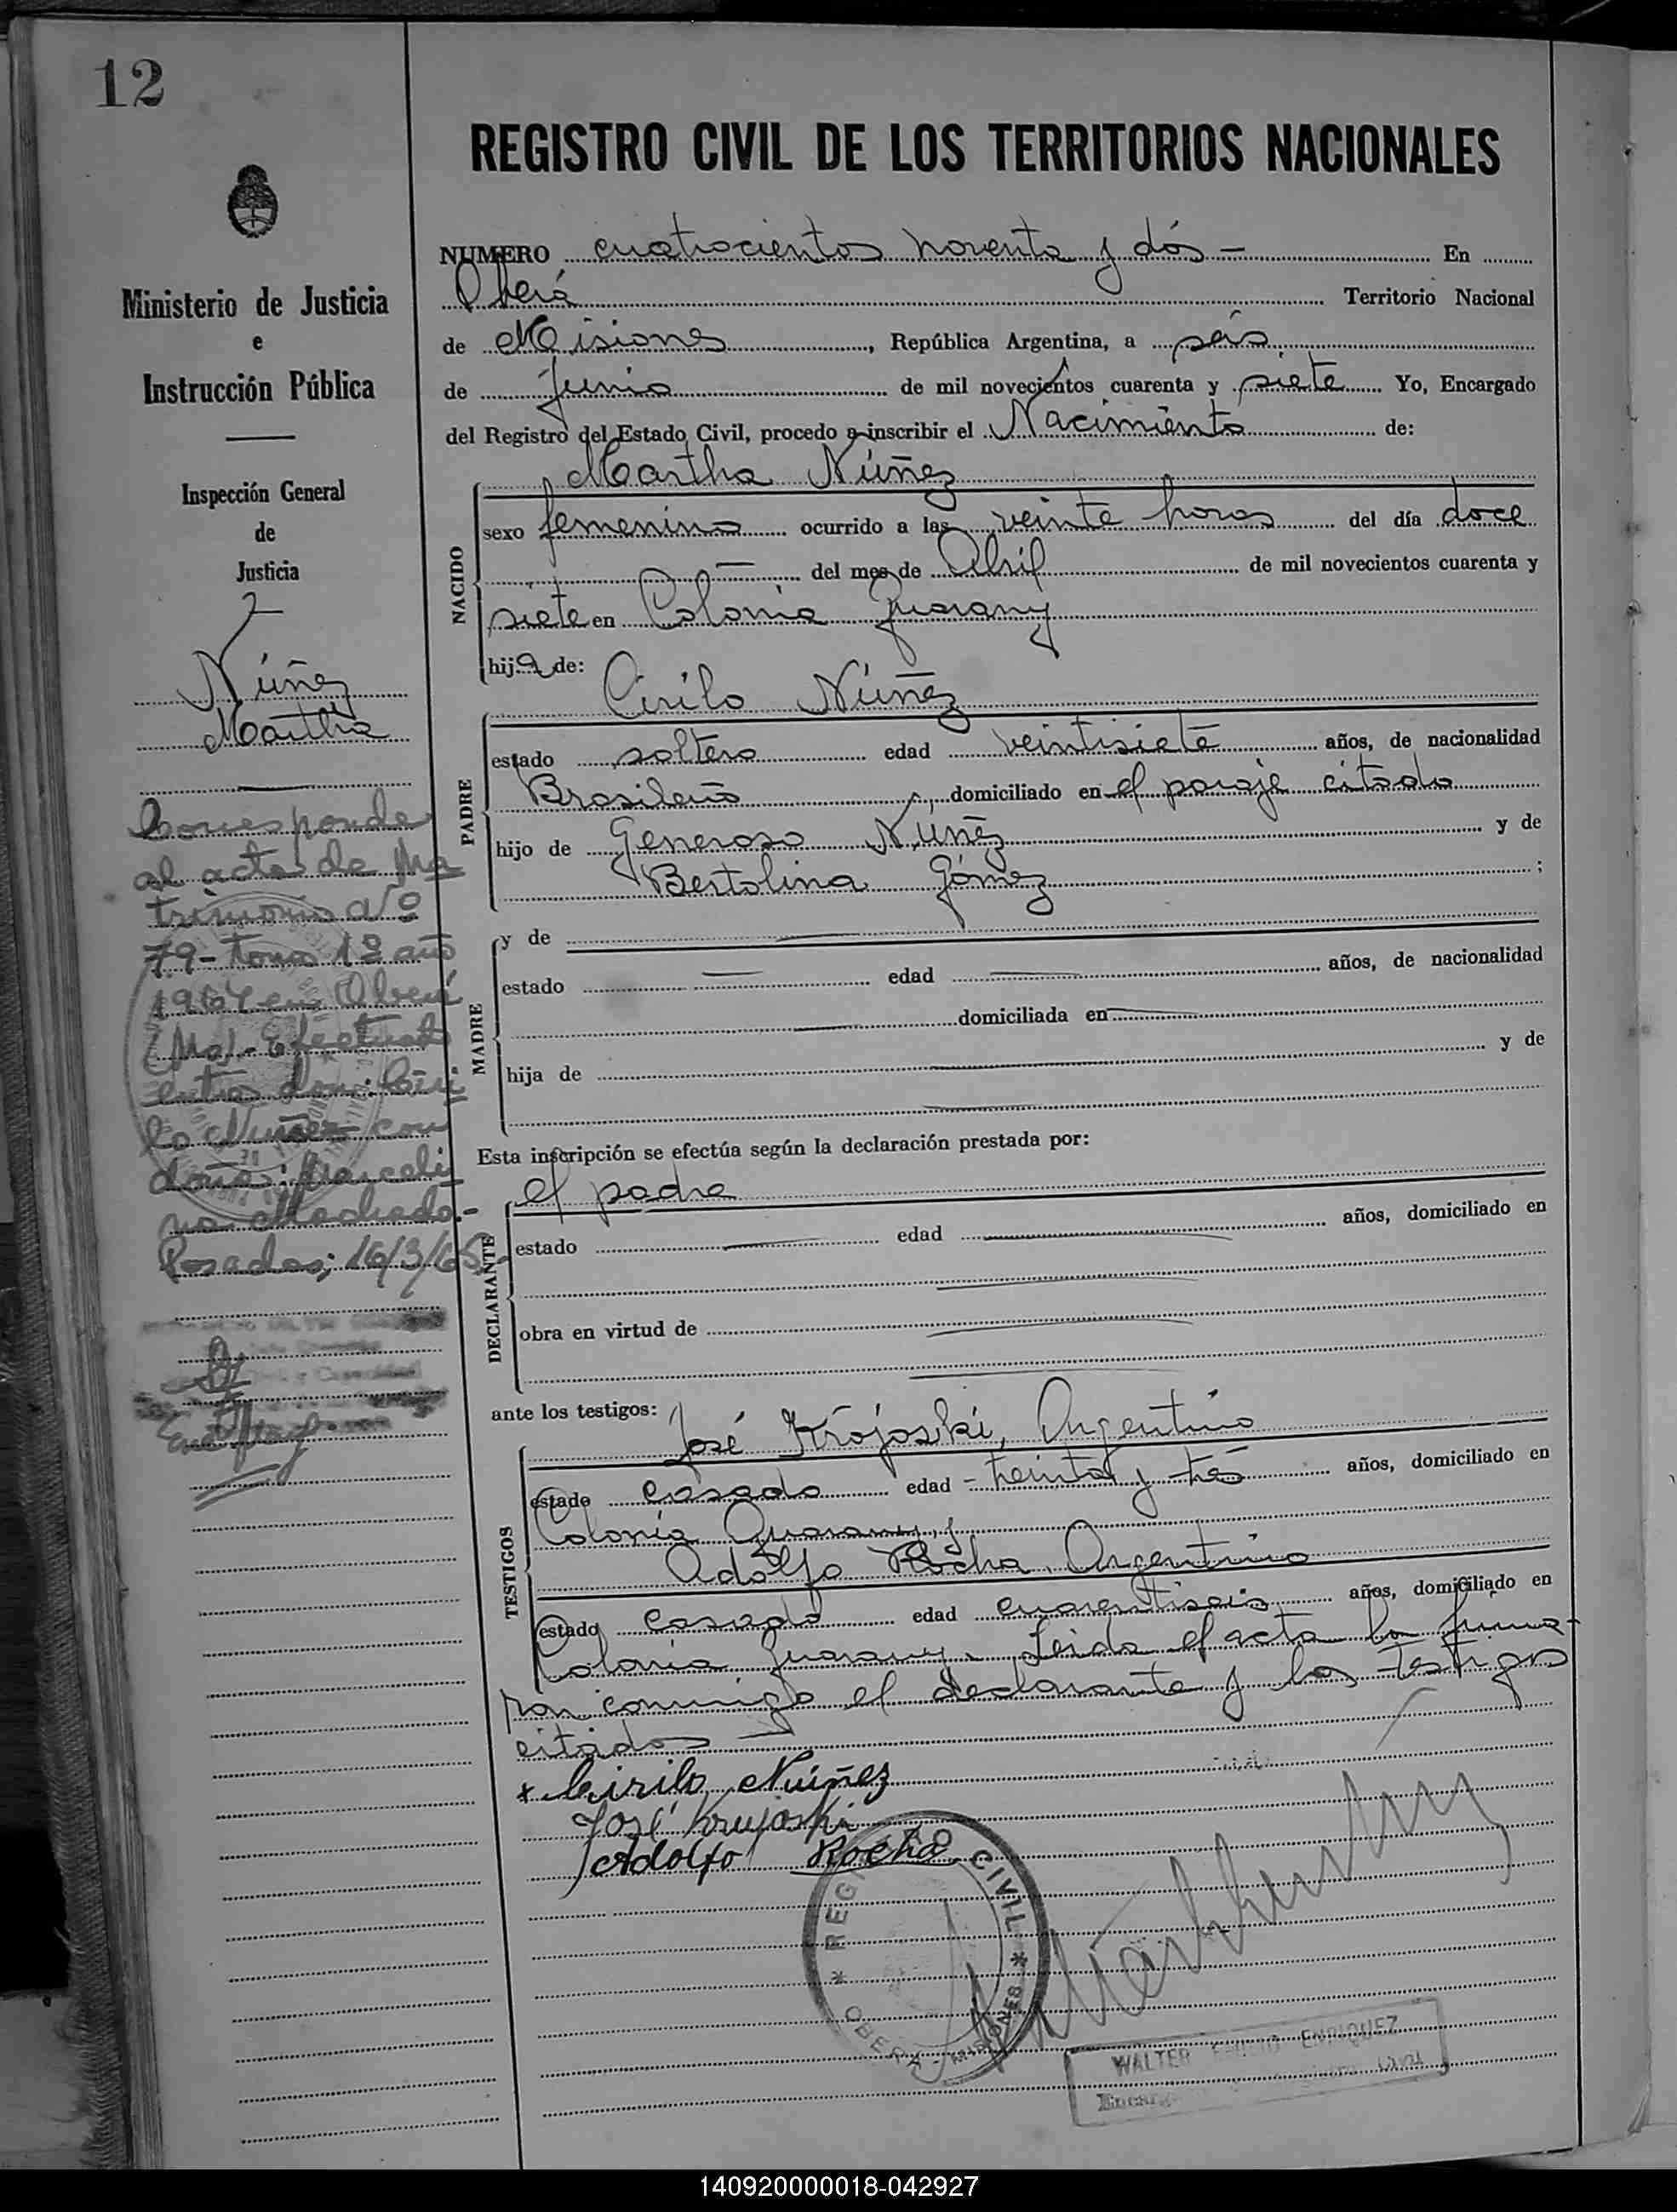 12
REGISTRO CIVIL DE LOS TERRITORIOS NACIONALES
Ministerio de Justicia
e
Instrucción Pública
Inspección General
de
Justicia
Núñez
Martha
Corresponde
al acta de Ma
trimonio Nº
79- tomo 1º año
1964 en Oberá
(Ms).- Efectuado
entre don: Ciri
lo Nuñez con
doña: Marceli
na Machado.-
Posadas; 16/3/65.
NUMERO cuatrocientos noventa y dós - En
Oberá Territorio Nacional
de Misiones, República Argentina, a seis
de Junio de mil novecientos cuarenta y siete Yo, Encargado
del Registro del Estado Civil, procedo a inscribir el Nacimiento de:
NACIDO
Martha Núñez
sexo femenino ocurrido a las veinte horas del día doce
del mes de Abril de mil novecientos cuarenta y
siete en Colonia Guarany
hija de:
PADRE
Cirilo Núñez
estado soltero edad veintisiete años, de nacionalidad
Brasileño, domiciliado en el paraje citado
hijo de Generoso Núñez y de
Bertolina Gómez ;
MADRE
y de
estado edad años, de nacionalidad
domiciliada en
hija de y de
Esta inscripción se efectúa según la declaración prestada por:
DECLARANTE
el padre
estado edad años, domiciliado en
obra en virtud de
ante los testigos:
TESTIGOS
José Krojoski, Argentino
estado casado edad - treinta y tres años, domiciliado en
Colonia Guarany, y
Adolfo Rocha, Argentino
estado casado edad cuarentiseis años, domiciliado en
Colonia Guarany - Leida el acta la firma-
ron conmigo el declarante y los testigos
citados
x Cirilo Núñez
José Krujoski
Adolfo Rocha
* REGISTRO CIVIL * OBERA - MISIONES
WALTER ENRIQUEZ
140920000018-042927